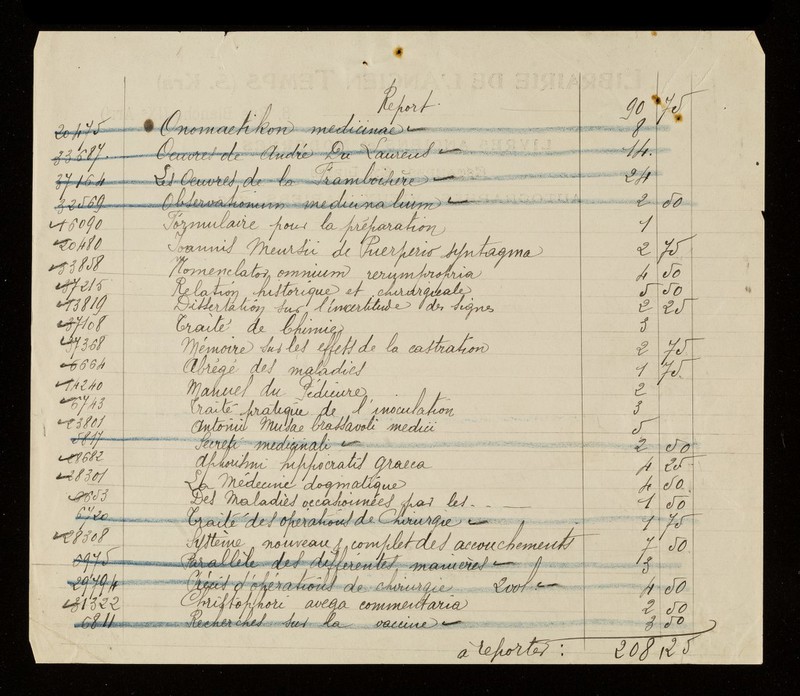 LIBRAIRIE DE L'ANCIEN TEMPS (S. Kra)
Report 90 75
20475 Onomastikon medicinae 8
33687 Oeuvres de André Du Laurens 14
37164 Les Oeuvres de la Framboisière 24
32569 Observationum medicinalium 2 50
16090 Formulaire pour la préparation 1
20480 Joannis Meursii de Puerperio syntagma 2 75
33858 Nomenclator omnium rerumpropria 4 50
37215 Relation historique et chirurgicale 5 50
13819 Dissertation sur l'incertitude des signes 2 25
37108 Traité de Chimie 3
37368 Mémoire sur les effets de la castration 2 75
6664 Abrégé des maladies 1 75
14240 Manuel du Pédicure 2
6743 Traité pratique de l'inoculation 3
23801 Antonii Musae brassavoli medici 5
5817 Secreti medicinali 2 50
28682 Aphorismi hippocratis graeca 4 25
28301 La Médecine dogmatique 4 50
Des Maladies occasionnées par les 1 50
6720 Traité des operations de Chirurgie 1 75
28308 Système nouveau & complet des accouchements 7 50
5975 Parallèle des differentes manieres 3
29794 Précis d'opérations de chirurgie 2 vol 4 50
31322 Christophori avega commentaria 2 50
6811 Recherches sur la vaccine 3 50
à reporter : 208,25